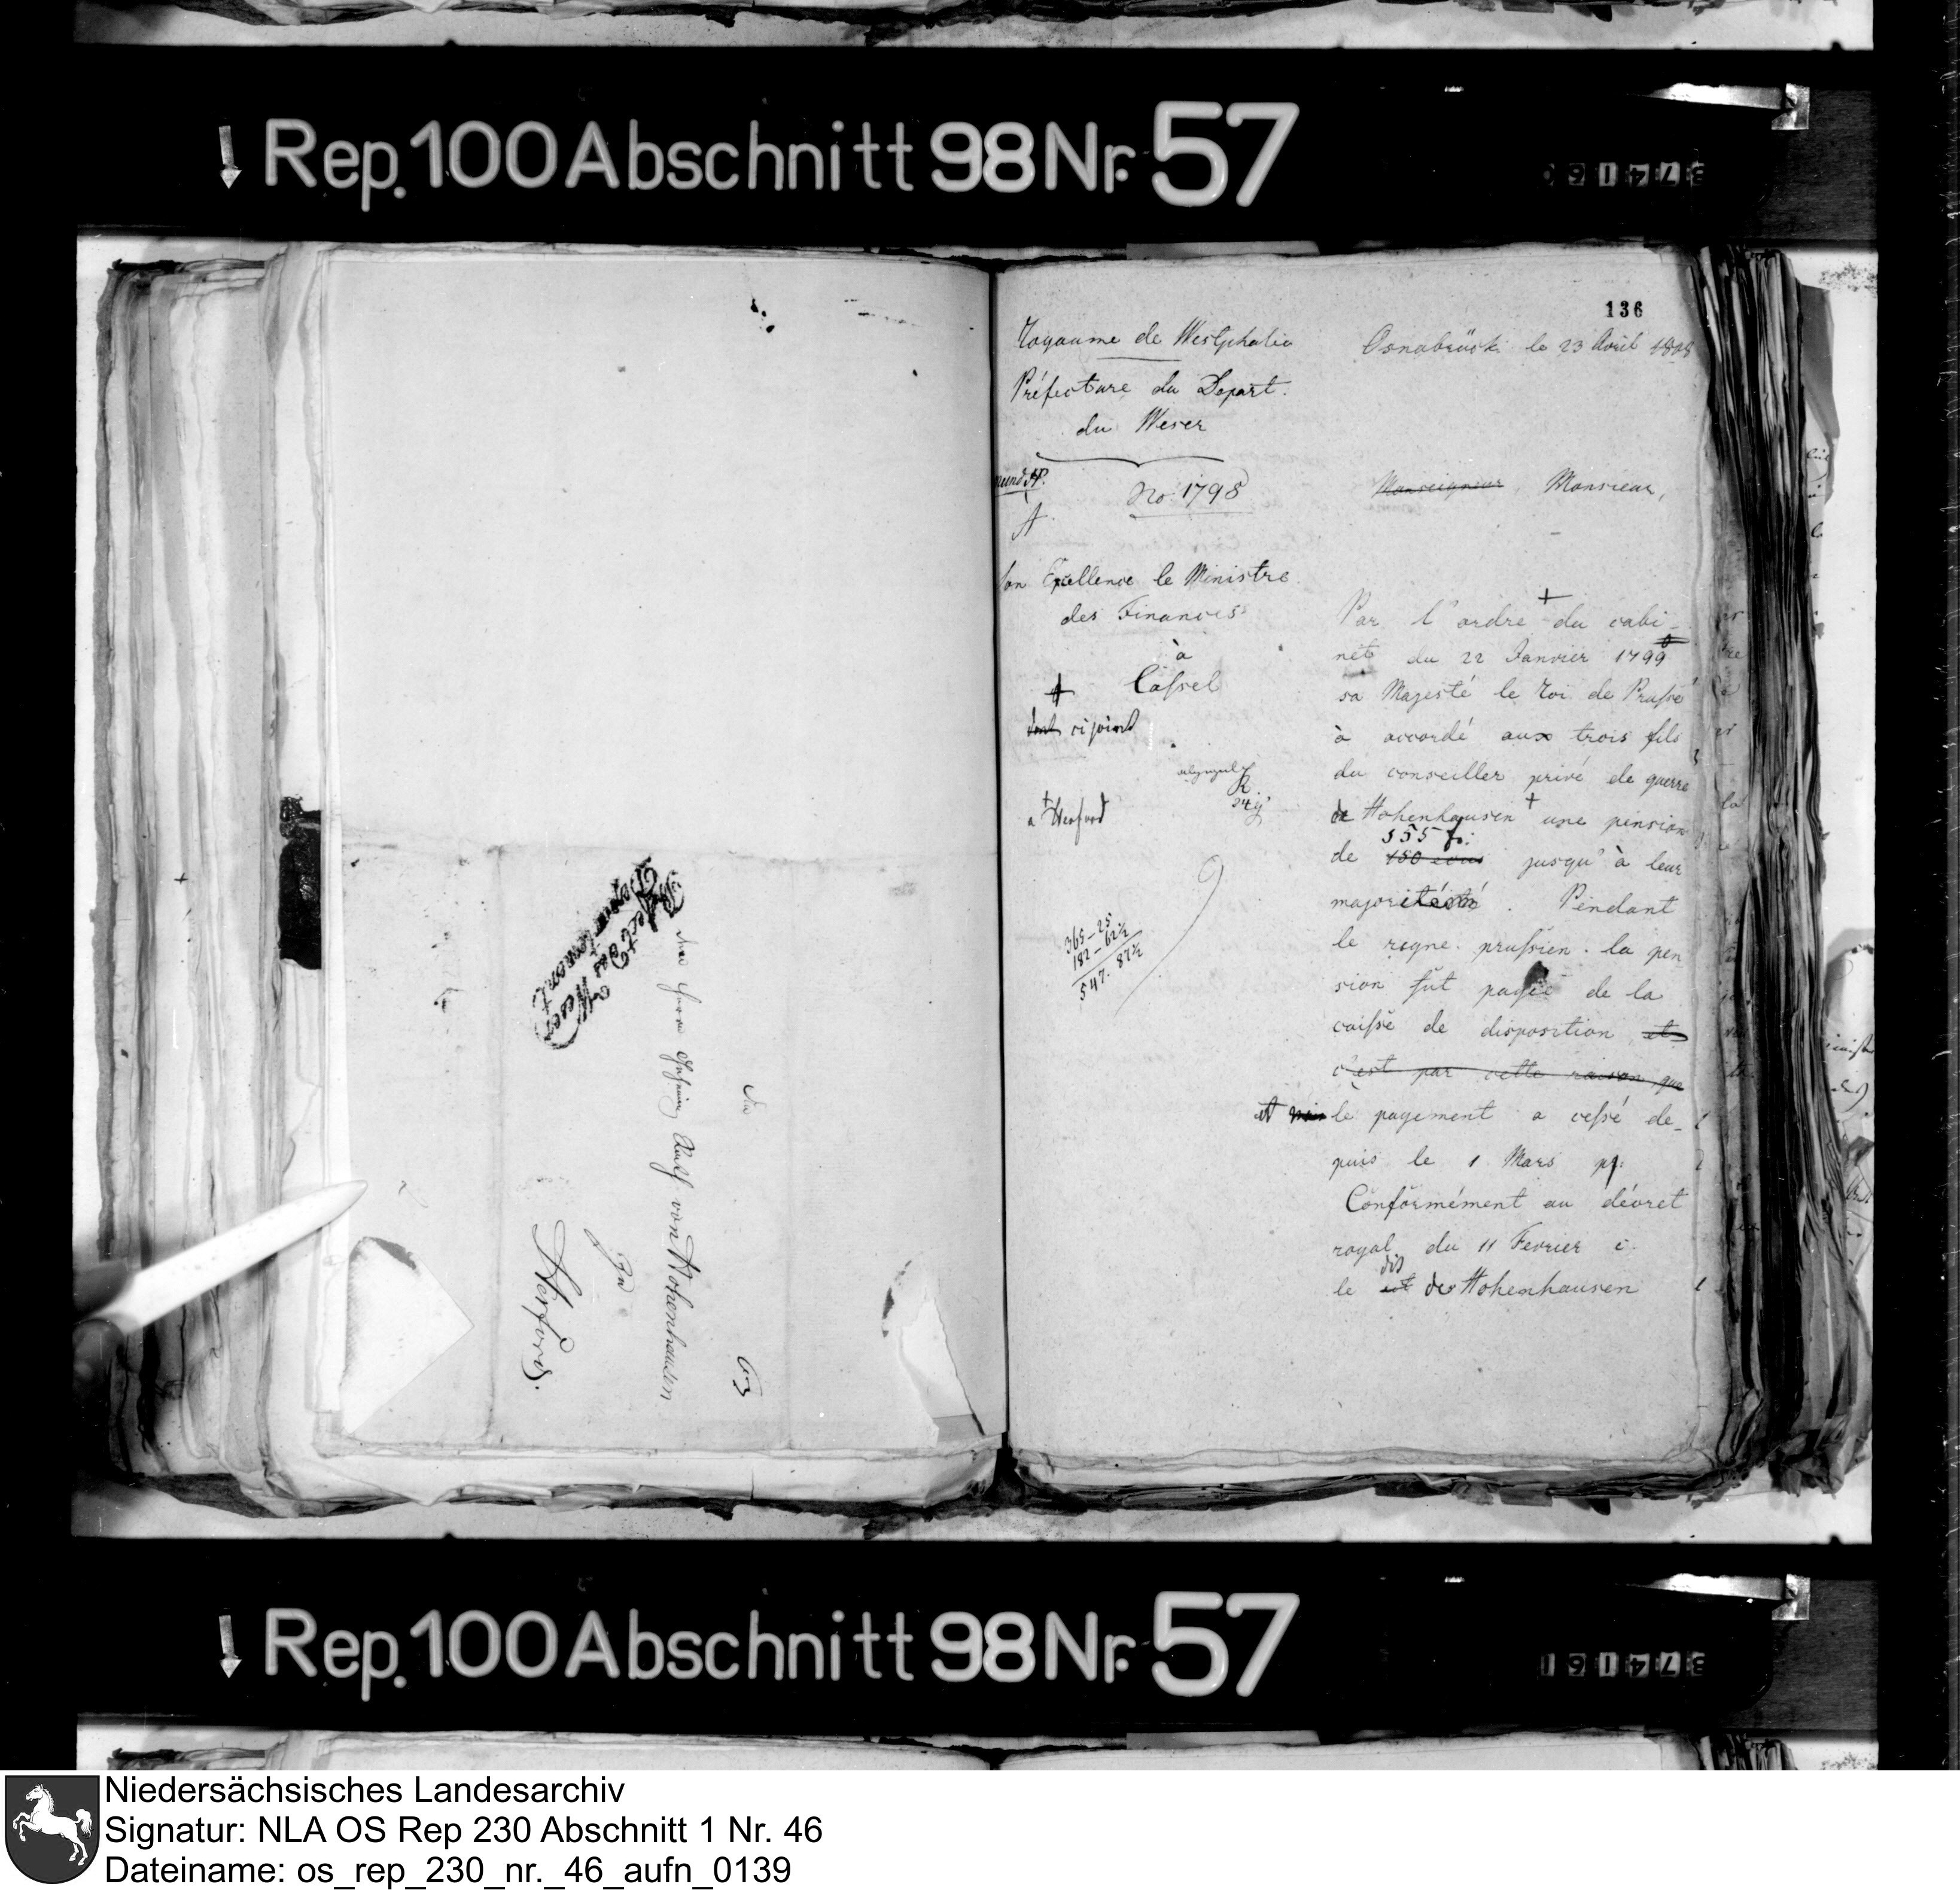 Rep. 100 Abschnitt 98 Nr. 57
Prefect des Weser
Departement
An
den Herrn Geheim Rath von Hohenhausen
zu
Herford.
136
Royaume de Westphalie
Préfecture du Depart.
du Weser
No. 1798
A
Son Exellence le Ministre
des Finances
à
Cassel
dont ci joint
a Herford
365-25
182-62½
547. 87½
Osnabrück le 23 Avril 1808
Monseigneur Monsieur,
Par l'ordre du cabi-
net du 22 Janvier 1799
sa Majesté le Roi de Prusse
à accordé aux trois fils
du conseiller privé de guerre
de Hohenhausen une pension
555 fr.
de 150 ecus jusqu'à leur
majorité. Pendant
le regne prussien la pen
sion fut payée de la
caisse de disposition et
c'est par cette raison que
et le payement a cessé de-
puis le 1 Mars pp.
Conformément au décret
royal du 11 Fevrier c.
dit
le de Hohenhausen
Rep. 100 Abschnitt 98 Nr. 57
Niedersächsisches Landesarchiv
Signatur: NLA OS Rep 230 Abschnitt 1 Nr. 46
Dateiname: os_rep_230_nr._46_aufn_0139